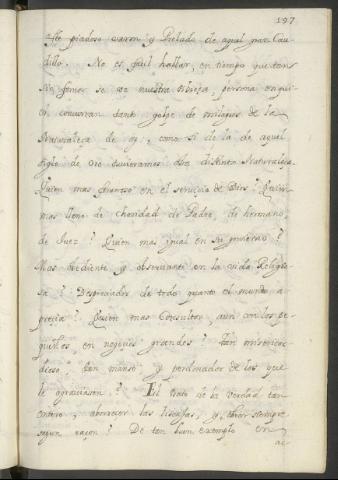 197
piadoso varon y Prelado de aquel par Cau-
dillo. No es facil hallar, en tiempo que tan
se ve nuestra tibieza, persona en qui-
en concurran tanto golpe de milagros de la
Naturaleza de oy, como si de la de aquel
siglo de oro tuvieramos otra distinta Naturaleza.
Quien mas fervoroso en el servicio de Dios? Quien
mas lleno de charidad de Padre, de hermano,
de Juez? Quien mas igual en su govierno?
Mas obediente y observante en la vida Religio-
sa? Despreciador de todo quanto el mundo a-
precia? Quien mas Consultor, aun con los pe-
queños, en negocios grandes? tan misericor-
dioso, tan manso y perdonador de los que
le agraviaron? El trato de la verdad tan
entero, aborrecer las lisonjas, y, obrar siempre
segun razon? De tan buen exemplo en
ac